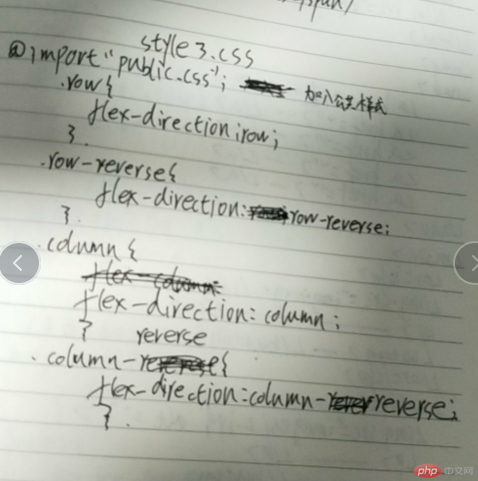 style3.css
@import "public.css"; 加入公共样式
.row{
flex-direction:row;
}
.row-reverse{
flex-direction: row-reverse;
}
.column{
flex-direction: column;
}
reverse
.column-{
flex-direction:column-reverse;
}
php 中文网